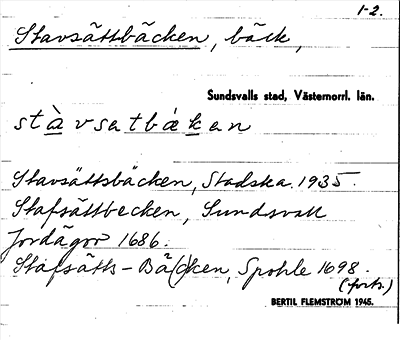 1-2.
Stavsättbäcken, bäck,
Sundsvalls stad, Västernorrl. län.
stàvsatbækan
Stavsättsbäcken, Stadska. 1935.
Stafsättbecken, Sundsvall
Jordägor 1686.
Stafsätts-Bä(c)ken, Spohle 1698.
(forts.)
BERTIL FLEMSTRÖM 1945.